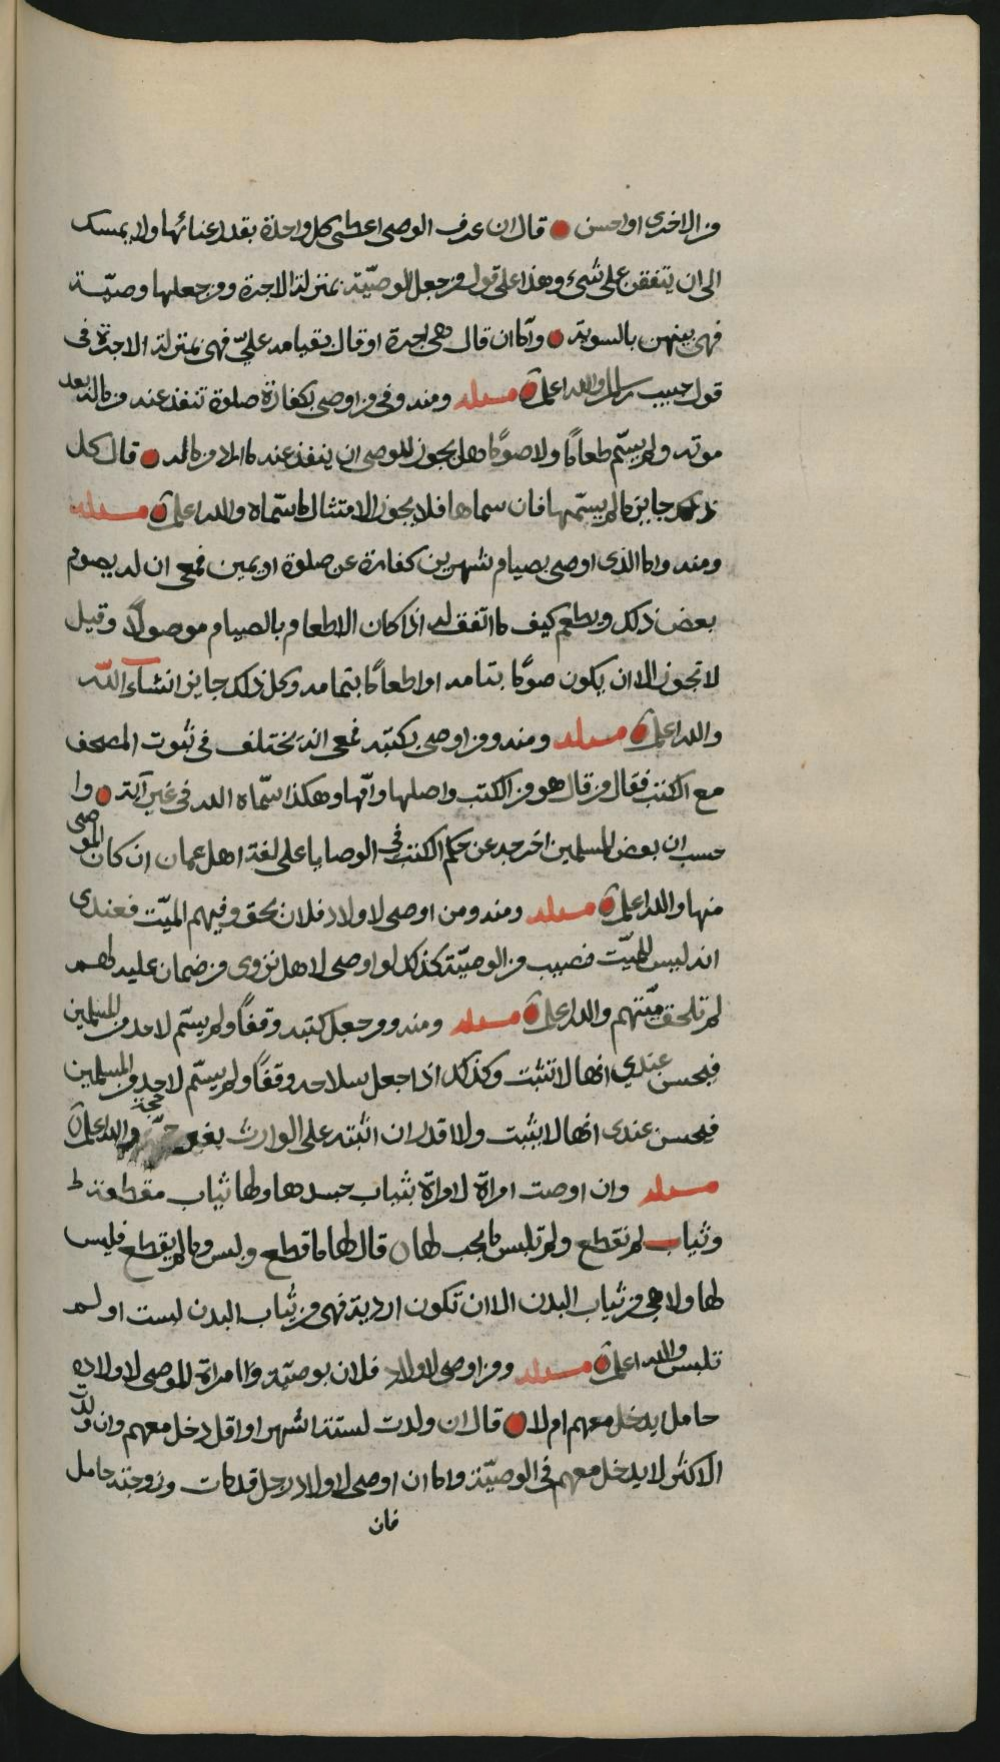 من الاخرى او احسن قال ان عرف الوصي اعطى كل واحدة بقدر عنائها ولا يمسك
الى ان يتفقن على شيء وهذا على قول من جعل الوصيّة بمنزلة الاجرة ومن جعلها وصيّة
فهي بينهن بالسوية وامّا ان قال هي اجرة او قال بقيامه عليّ فهي بمنزلة الاجرة في
قول حبيب بن سالم والله اعلم مسئلة ومنه وفي من اوصى بكفارة صلوة تنفذ عنه من ماله بعد
موته ولم يسّم طعامًا ولا صومًا هل يجوز للوصي ان ينفذ عنه ما اراد من ماله قال كل
ذلك جايز ما لم يسّمها فان سماها فلا يجوز الا امتثال ما سّماه والله اعلم مسئلة
ومنه واما الذي اوصى بصيام شهرين كفارة عن صلوة او يمين فمعي ان له يصوم
بعض ذلك ويطعم كيف ما اتفق له اذا كان الاطعام بالصيام موصولًا وقيل
لا تجوز الا ان يكون صومًا بتمامه او اطعامًا بتمامه وكل ذلك جايز انشآء الله
والله اعلم مسئلة ومنه ومن اوصى بكتبه فمعي انه يختلف في ثبوت المصحف
مع الكتب فقال من قال هو من الكتب واصلها وامّها وهكذا سّماه الله في غير آية وا
حسب ان بعض المسلمين اخرجه عن حكم الكتب في الوصايا على لغة اهل عمان ان كان الموصى
منها والله اعلم مسئلة ومنه ومن اوصى لاولاد فلان بحق وفيهم الميّت فعندى
انه ليس للميّت نصيب من الوصيّة كذلك لو اوصى لاهل نزوى من ضمان عليه لهم
لم تلحق ميّتهم والله اعلم مسئلة ومنه ومن جعل كتبه وقفًا ولم يسّم لاحد من المسلمين
فيحسن عندي انها لا تثبت وكذلك اذا جعل سلاحه وقفًا ولم يسّم لاحد من المسلمين
فيحسن عندى انها لا يثبت ولا اقدر ان اثبته على الوارث بغير حجة والله اعلم
مسئلة وان اوصت امراة لامراة بثياب جسدها ولها ثياب مقطعة
وثياب لم تقطع ولم تلبس ما يجب لها قال لها ما قطع ولبس وما لم يقطع فليس
لها ولا هي من ثياب البدن الا ان تكون اردية فهي من ثياب البدن لبست او لم
تلبس والله اعلم مسئلة ومن اوصى لاولاد فلان بوصيّة وامراة الموصى لاولاده
حامل يدخل معهم ام لا قال ان ولدت لستة اشهر او اقل دخل معهم وان ولدت
الاكثر لا يدخل معهم في الوصيّة واما ان اوصى لاولاد رجل قد مات وزوجته حامل
فان